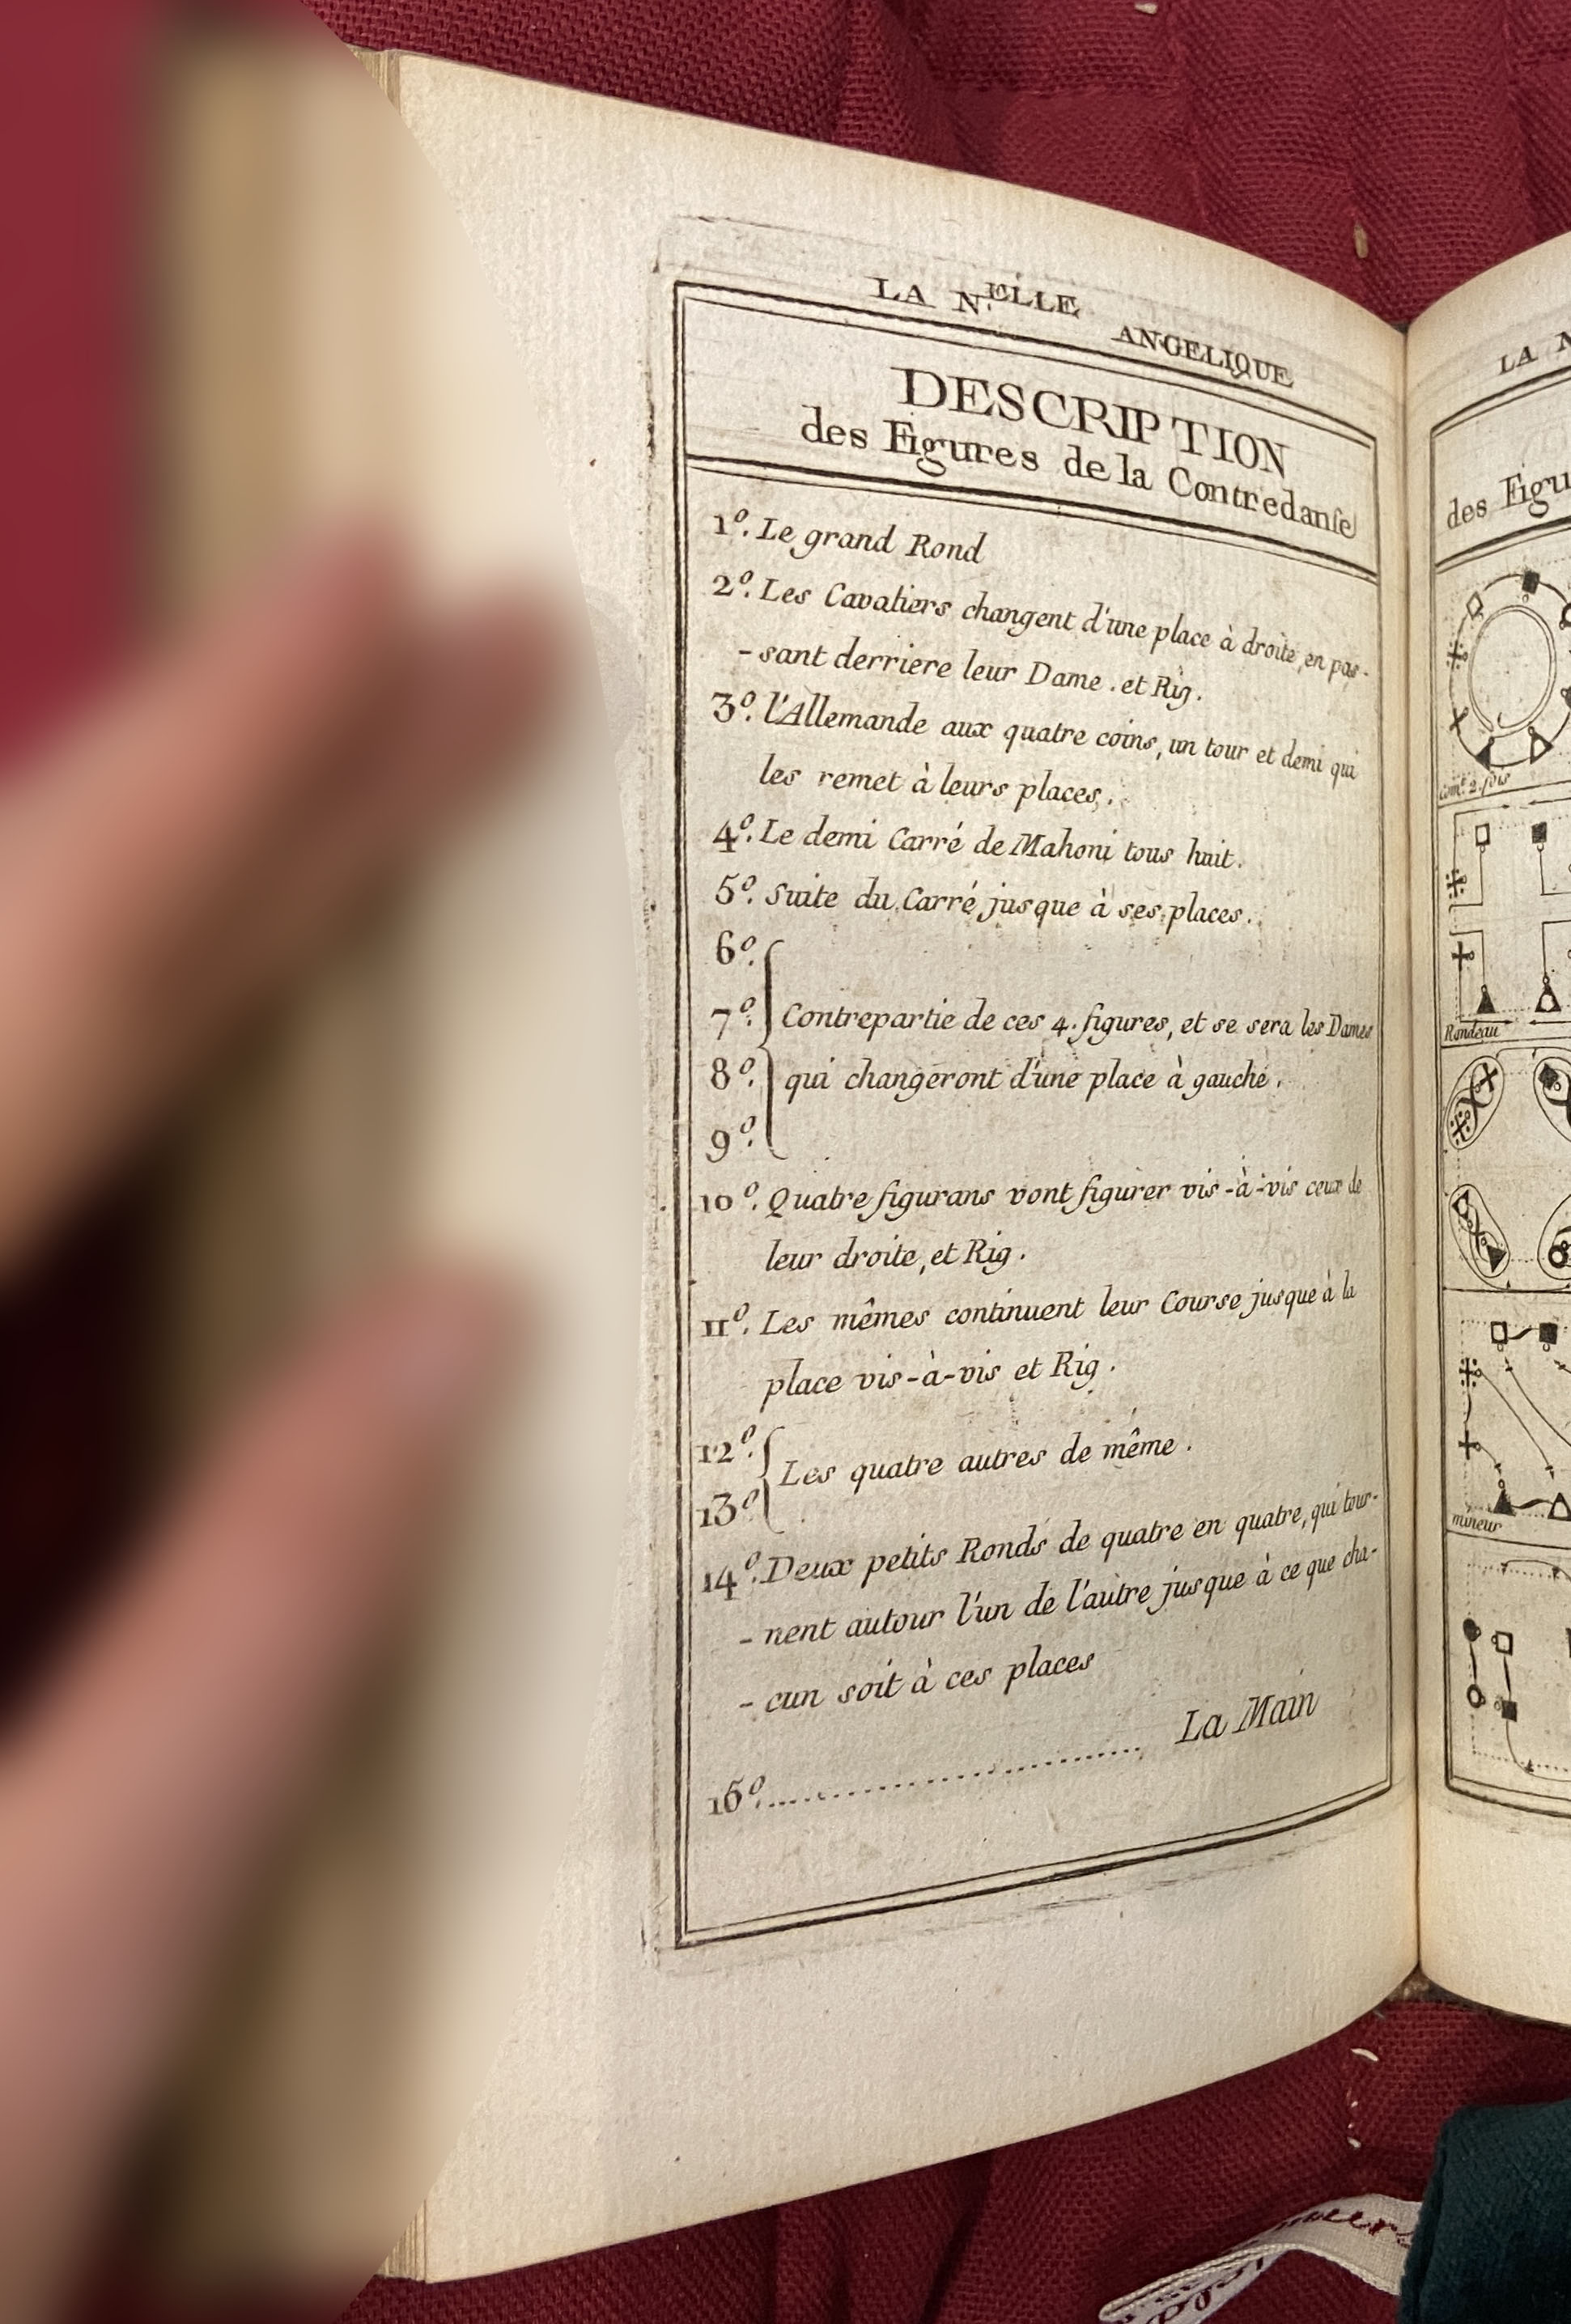 LA N.ELLE ANGELIQUE
DESCRIPTION
des Figures de la Contredanse
1º. Le grand Rond
2º. Les Cavaliers changent d'une place à droite, en pas-
- sant derriere leur Dame . et Rig.
3º. l'Allemande aux quatre coins, un tour et demi qui
les remet à leurs places.
4º. Le demi Carré de Mahoni tous huit.
5º. Suite du Carré jusque à ses places.
6º.
7º. Contrepartie de ces 4. figures, et se sera les Dames
8º. qui changeront d'une place à gauche.
9º.
10º. Quatre figurans vont figurer vis-à-vis ceux de
leur droite, et Rig.
11º. Les mêmes continuent leur Course jusque à la
place vis-à-vis et Rig.
12º. Les quatre autres de même.
13º
14º. Deux petits Ronds de quatre en quatre, qui tour-
- nent autour l'un de l'autre jusque à ce que cha-
- cun soit à ces places
15º. .................................. La Main
LA N
des Figu
2. fois
Rondeau
mineur